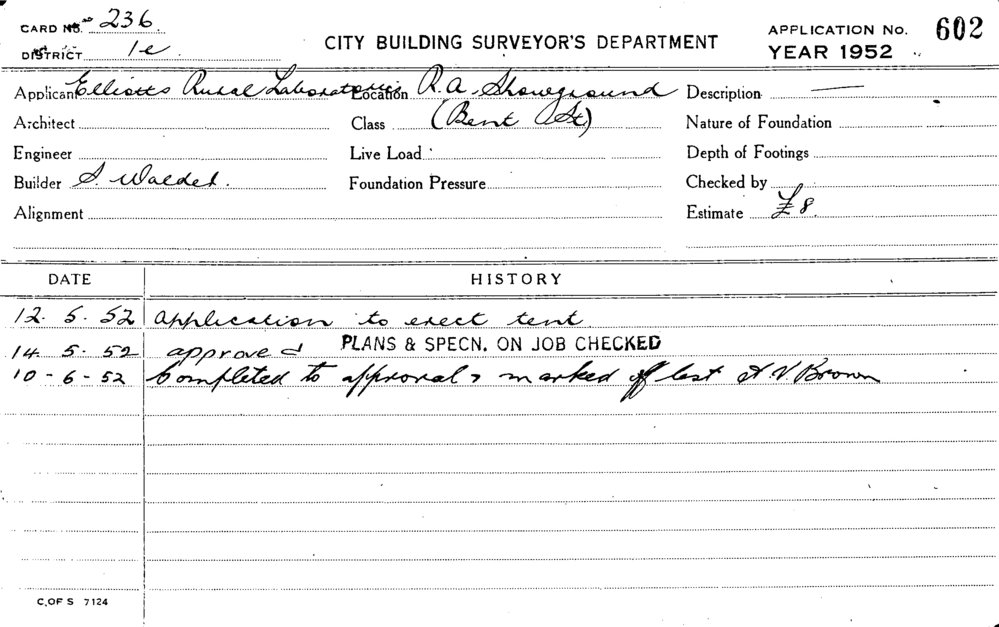 CARD No. 236.
DISTRICT 1e
CITY BUILDING SURVEYOR'S DEPARTMENT
APPLICATION No. 602
YEAR 1952
Applicant Elliotts Rural Laboratories Location R.A. Showground Description —
Architect Class (Bent St) Nature of Foundation
Engineer Live Load Depth of Footings
Builder S. Foundation Pressure Checked by
Alignment Estimate £8
DATE HISTORY
12. 5. 52 application to erect tent
14. 5. 52 approved PLANS & SPECN. ON JOB CHECKED
10-6-52 Completed to approval & marked off last Brown
C. OF S 7124